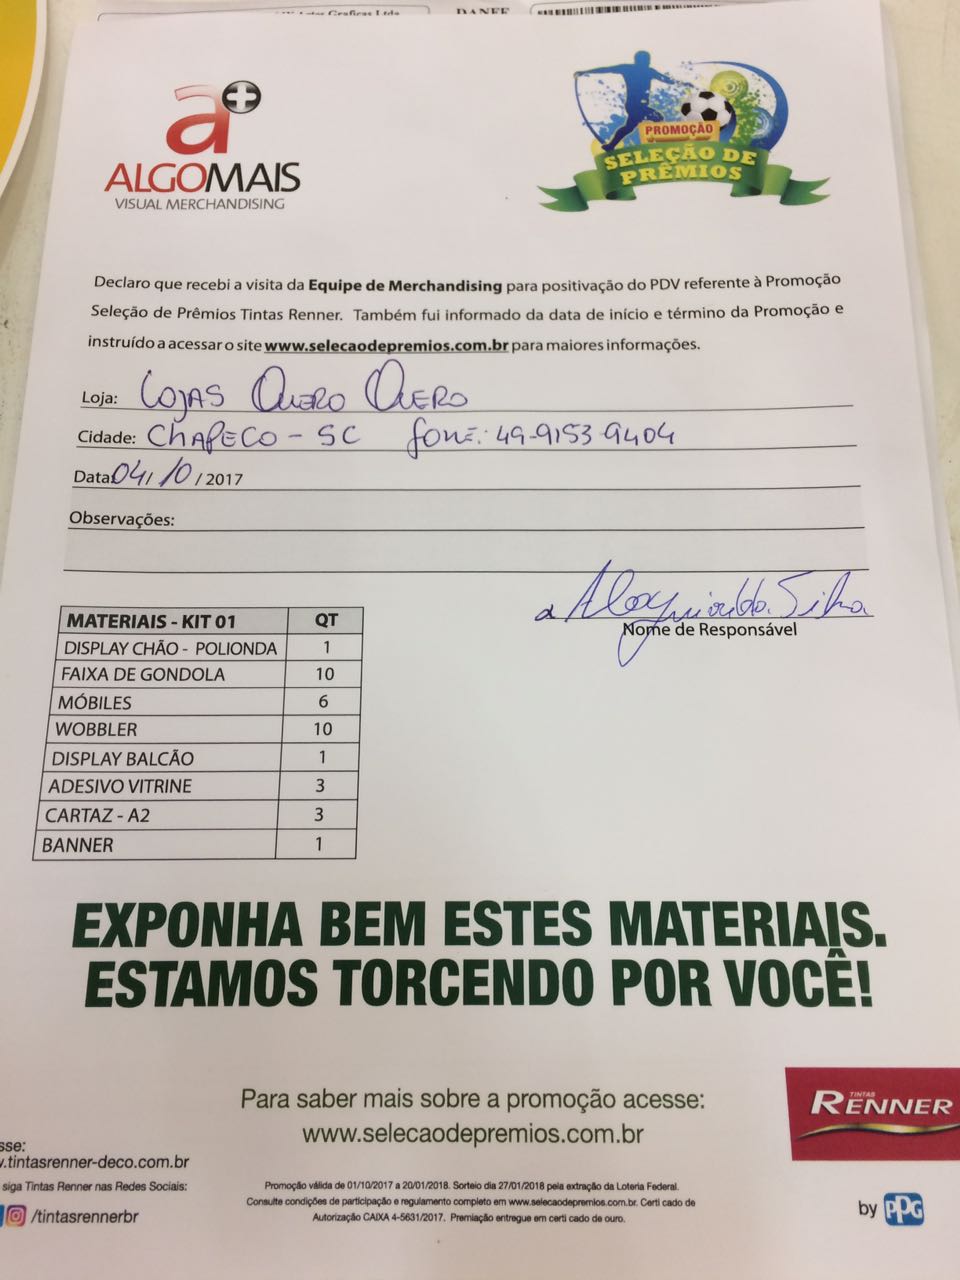 Graficas Ltda
DANFE
a+
ALGOMAIS
VISUAL MERCHANDISING
PROMOÇÃO
SELEÇÃO DE
PRÊMIOS
Declaro que recebi a visita da Equipe de Merchandising para positivação do PDV referente à Promoção
Seleção de Prêmios Tintas Renner. Também fui informado da data de início e término da Promoção e
instruído a acessar o site www.selecaodepremios.com.br para maiores informações.
Loja: LOJAS QUERO QUERO
Cidade: CHAPECO - SC fone: 49-9153-9404
Data: 04/10/2017
Observações:
Silva
Nome de Responsável
MATERIAIS - KIT 01 QT
DISPLAY CHÃO - POLIONDA 1
FAIXA DE GONDOLA 10
MÓBILES 6
WOBBLER 10
DISPLAY BALCÃO 1
ADESIVO VITRINE 3
CARTAZ - A2 3
BANNER 1
EXPONHA BEM ESTES MATERIAIS.
ESTAMOS TORCENDO POR VOCÊ!
Para saber mais sobre a promoção acesse:
www.selecaodepremios.com.br
TINTAS
RENNER
sse:
.tintasrenner-deco.com.br
siga Tintas Renner nas Redes Sociais:
/tintasrennerbr
Promoção válida de 01/10/2017 a 20/01/2018. Sorteio dia 27/01/2018 pela extração da Loteria Federal.
Consulte condições de participação e regulamento completo em www.selecaodepremios.com.br. Certi cado de
Autorização CAIXA 4-5631/2017. Premiação entregue em certi cado de ouro.
by PPG